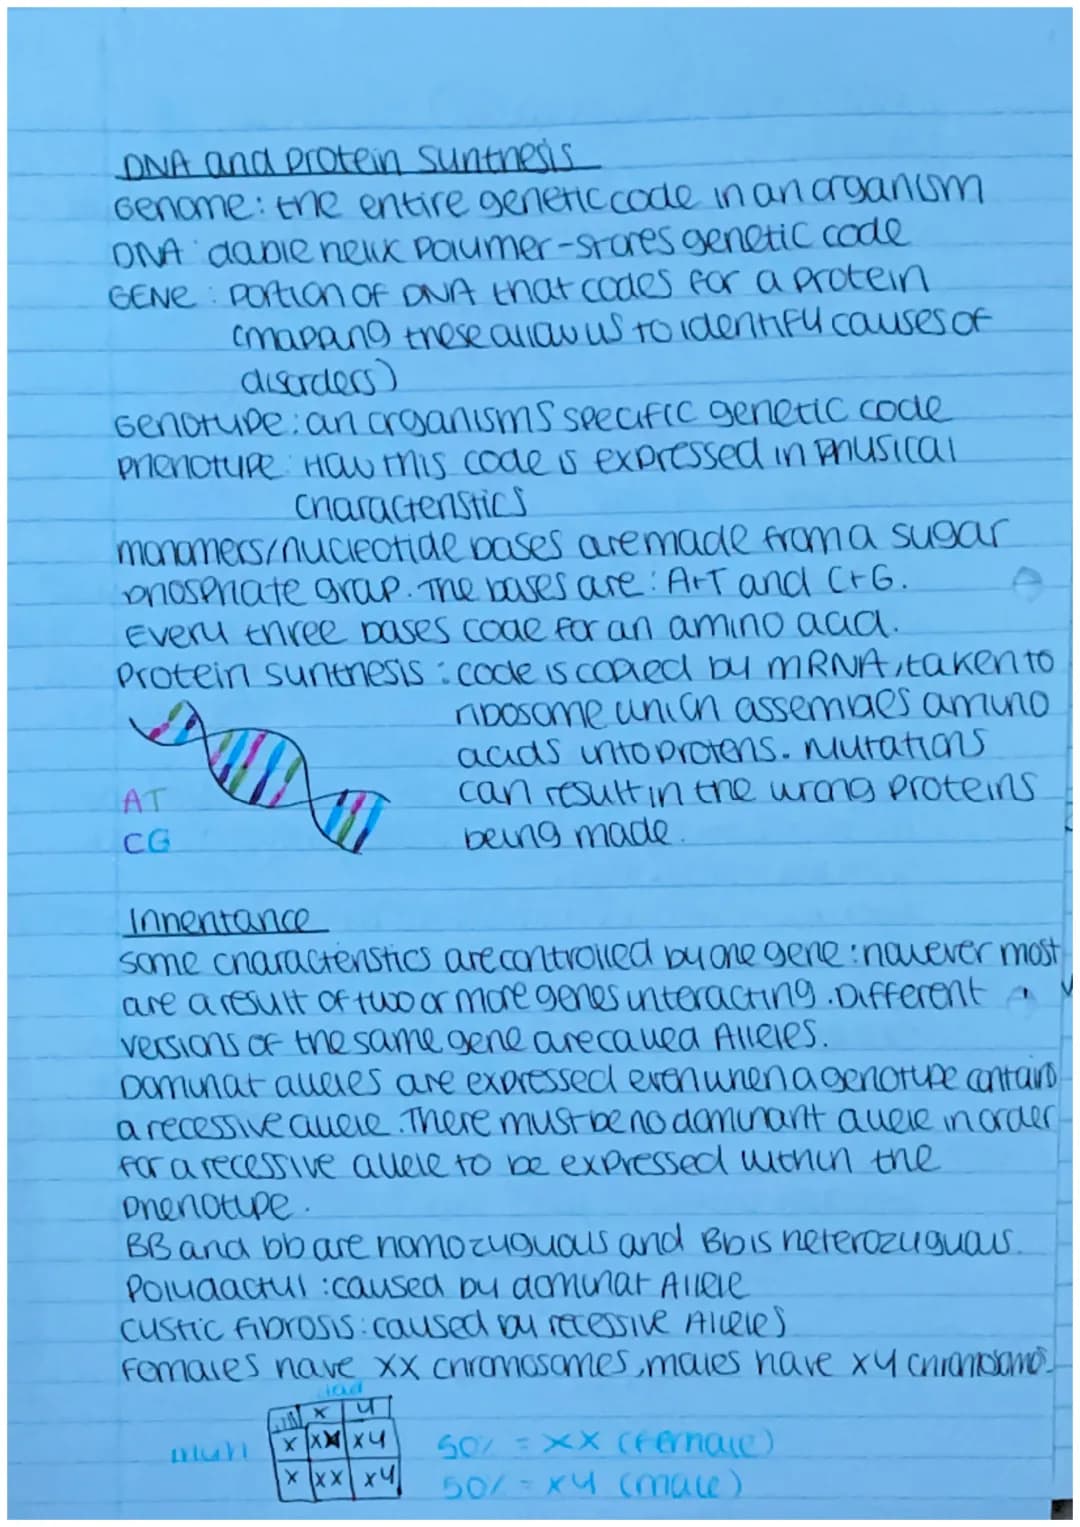 DNA and protein synthesis
Genome: the entire genetic code in an organism
DNA: doble helix polymer - stores genetic code
GENE: portion of DNA that codes for a protein
(mapping these allow us to identify causes of
disorders)
Genotype: an organisms specific genetic code
phenotype: How this code is expressed in physical
characteristics
monomers/nucleotide bases are made from a sugar
phosphate group. The bases are: A+T and C+G.
Every three bases code for an amino acid.
Protein synthesis: code is copied by mRNA, taken to
ribosome which assembles amino
acids into protens. Mutations
can result in the wrong proteins
being made.
AT
CG
Inheritance
some characteristics are controlled by one gene: however most
are a result of two or more genes interacting. Different
versions of the same gene are called Alleles.
Dominat alleles are expressed even when a genotype contains
a recessive allele. There must be no dominant allele in order
for a recessive allele to be expressed within the
phenotype.
BB and bb are homozygous and Bb is heterozygous.
Polydactyl: caused by dominat Allele
cystic fibrosis: caused by recessive Alleles
females have XX chromosomes, males have xy chromosomes
dad
x y
mum x xx xy 50% = XX (female)
x xx xy 50% = xy (male)